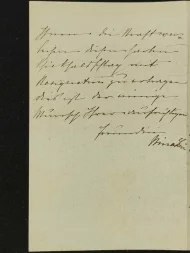 Ihnen die Kraft ver-
leihen diesen harten
Schicksalsschlag mit
Resignation zu ertragen
dies ist der innige
Wunsch Ihrer aufrichtigen
Freundin